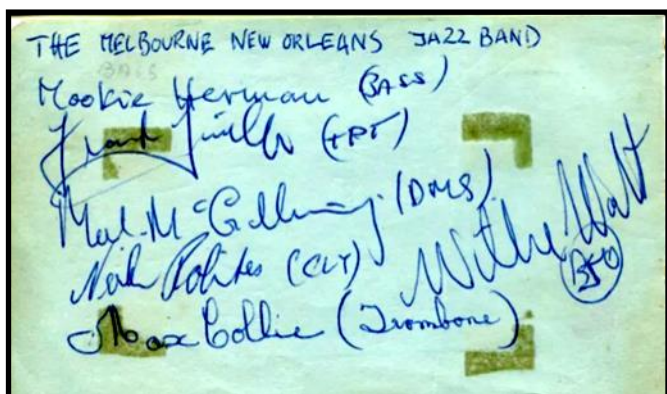 THE MELBOURNE NEW ORLEANS JAZZ BAND
BASS
Mookie Herman (BASS)
Frank (TPT)
Mal. (DMS)
Nick Polites (CLT)
Willie Watt
BJO
Max Collie (Trombone)